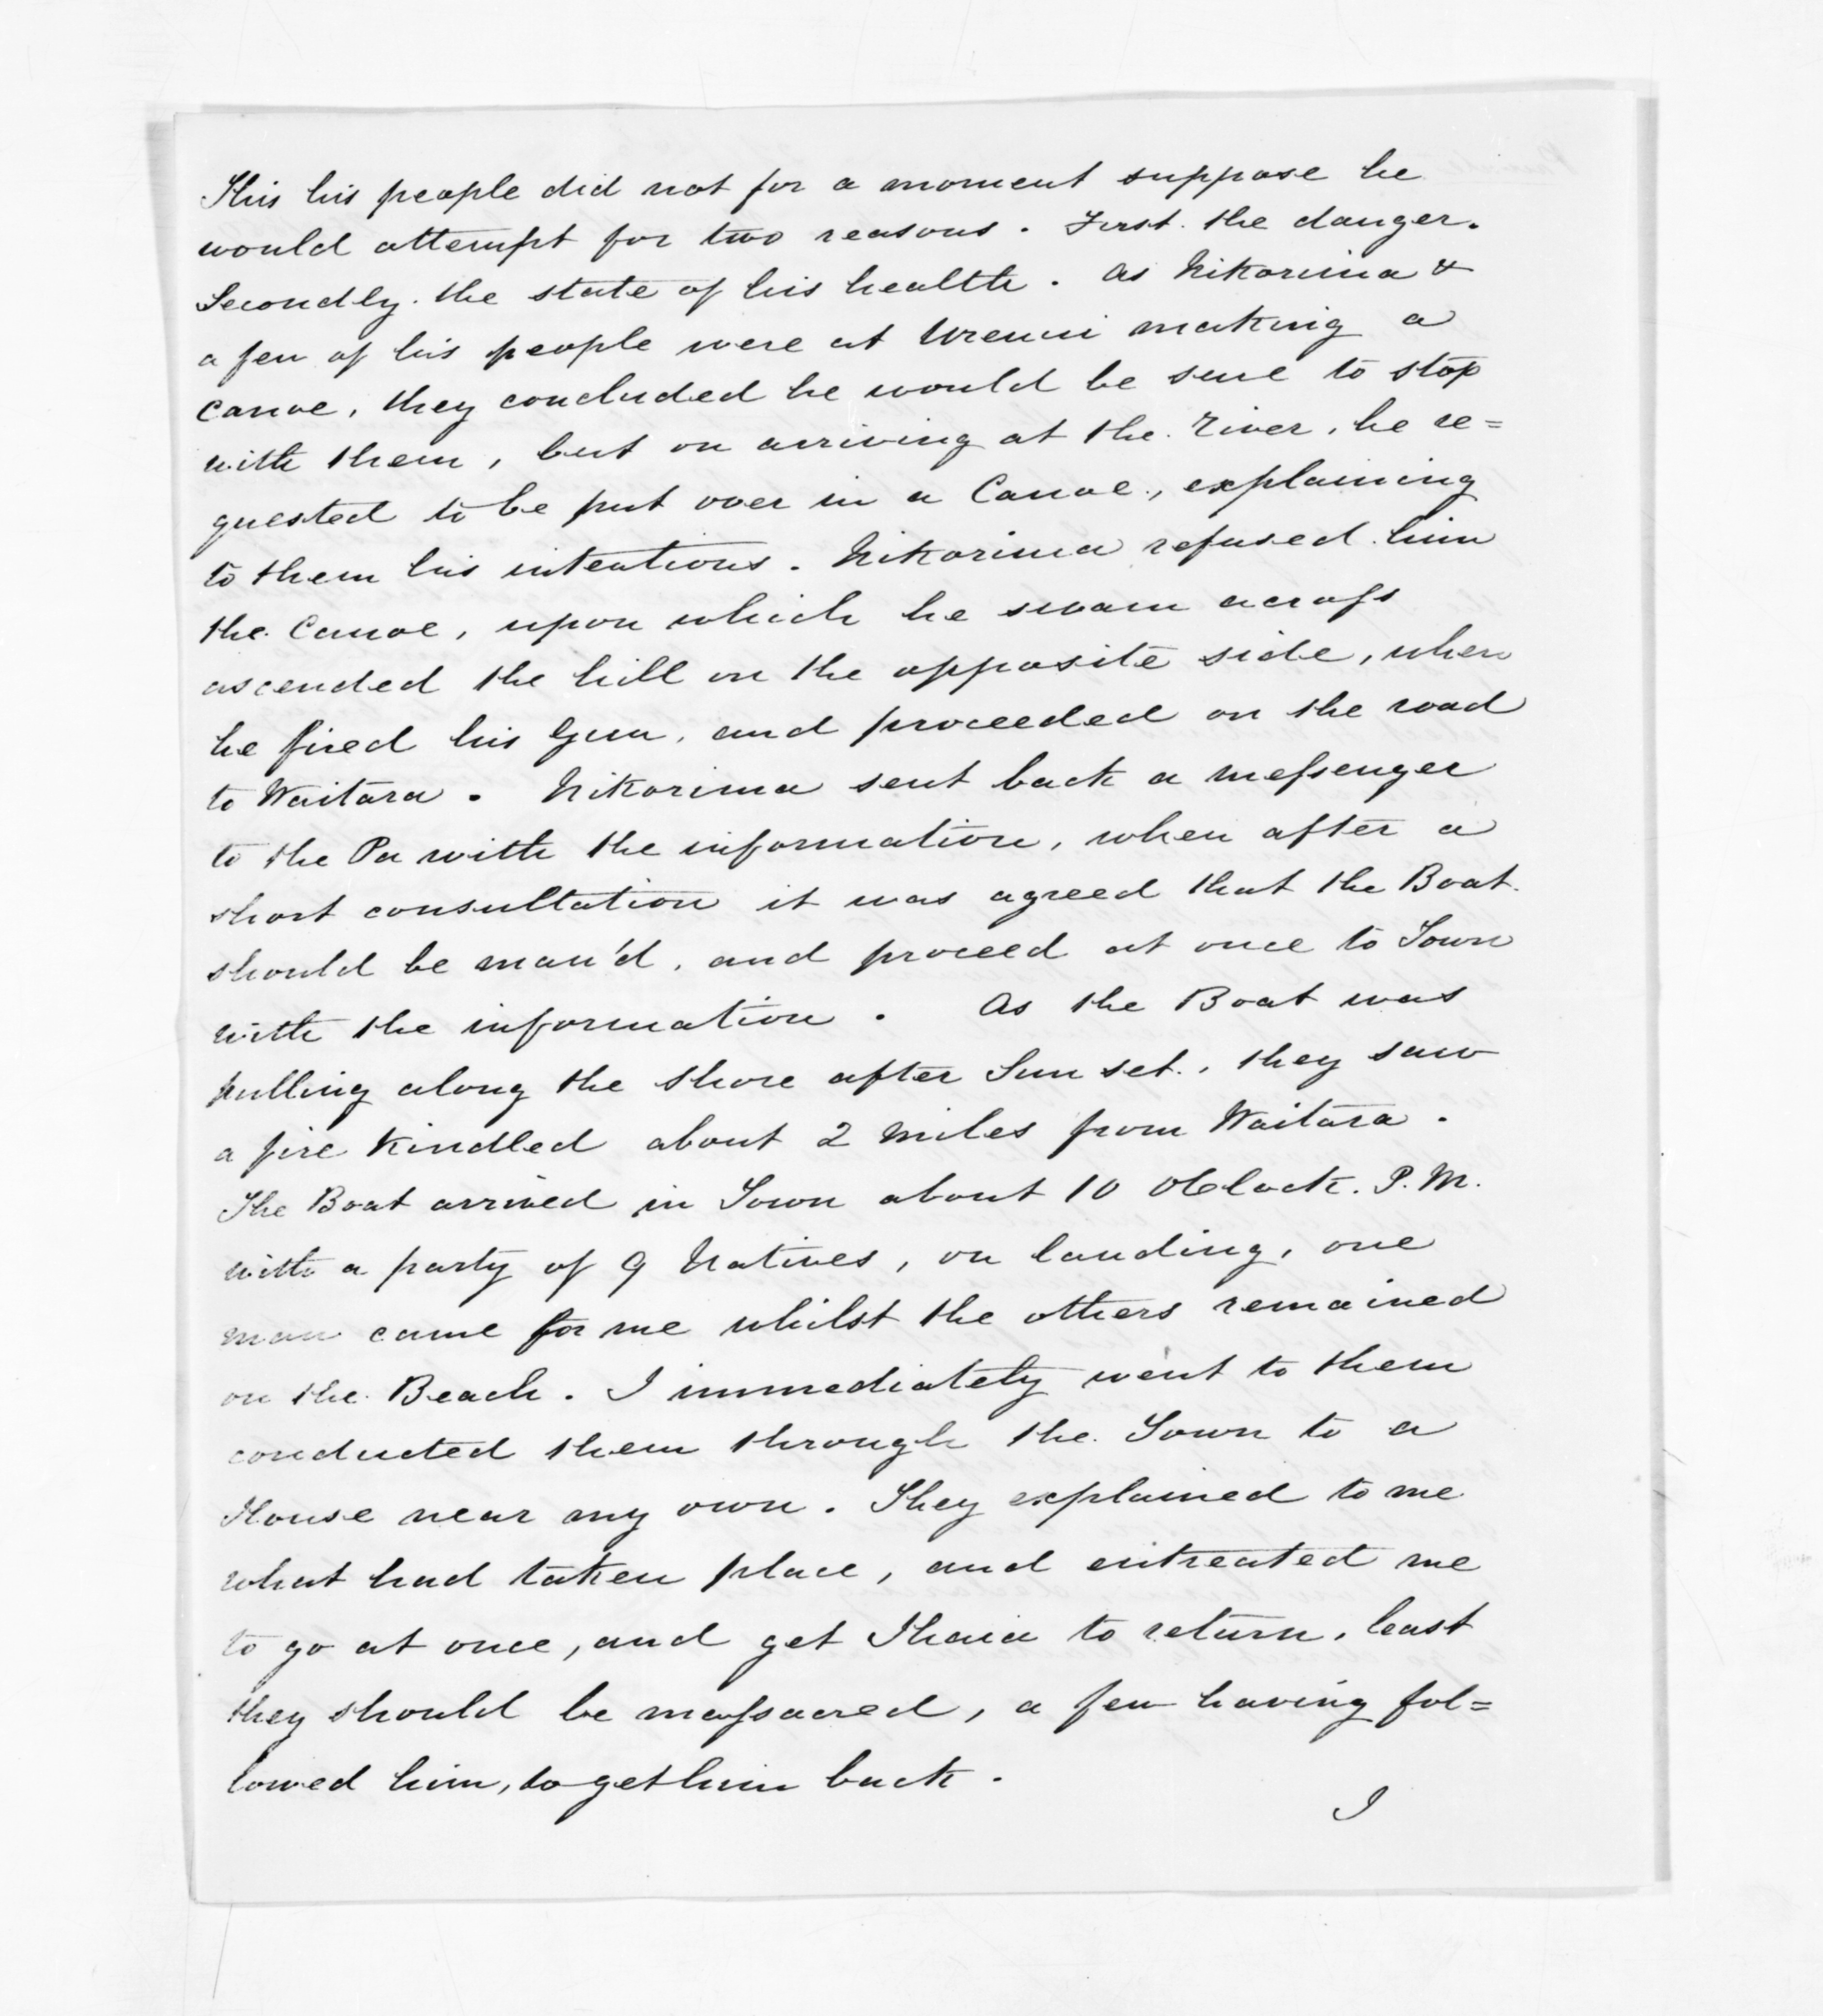 This his people did not for a moment suppose he
would attempt for two reasons. First. the danger.
Secondly. the state of his health. As Nikorima &
a few of his people were at Urenui making a
Canoe, they concluded he would be sure to stop
with them, but on arriving at the River, he re=
quested to be put over in a Canoe, explaining
to them his intentions. Nikorima refused him
the Canoe, upon which he swam across
ascended the hill on the opposite side, when
he fired his Gun, and proceeded on the road
to Waitara. Nikorima sent back a messenger
to the Pa with the information, when after a
short consultation it was agreed that the Boat
should be man'd, and proceed at once to Town
with the information. As the Boat was
pulling along the shore after Sun set., they saw
a fire Kindled about 2 Miles from Waitara.
The Boat arrived in Town about 10 OClock. P.M.
with a party of 9 Natives, on landing, one
man came for me whilst the others remained
on the Beach. I immediately went to them
conducted them through the Town to a
House near my own. They explained to me
what had taken place, and entreated me
to go at once, and get Ihaia to return, least
they should be massacred, a few having fol=
lowed him, to get him back.
I